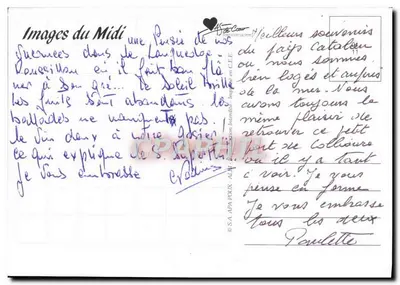 Images du Midi
une Pensée de nos
vacances dans le Languedoc
Roussillon où il fait bon flâ
ner à son gré... Le soleil brille
les fruits sont abondants les
ballades ne manquent pas
le vin doux à notre gosier
ce qui explique
Je vous embrasse
Meilleurs souvenirs
du pays catalan
où nous sommes
bien logés et auprès
de la mer. Nous
avons toujours le
même plaisir de
retrouver ce petit
port de Collioure
où il y a tant
à voir. Je vous
pense en forme
Je vous embrasse
tous les deux
Paulette
© S.A. APA-POUX